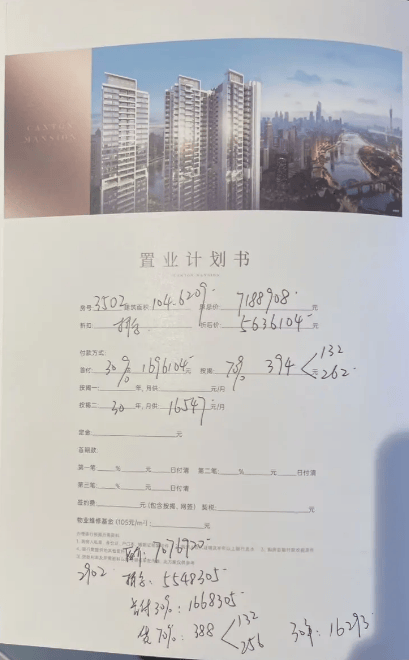 CANTON
MANSION
置业计划书
CANTON MANSION
房号: 3502 建筑面积: 104.6209 原总价: 7188908 元
折扣: 折后价: 5636104 元
付款方式:
首付: 30% 1696104 元 按揭: 70% 394 元 132
262
按揭一: 年, 月供: 元/月
按揭二: 30 年, 月供: 16547 元/月
定金: 元
首期款:
第一笔: % 元 日付清 第二笔: % 元 日付清
第三笔: % 元 日付清
签约费: 元 (包含按揭、网签) 契税: 元
物业维修基金 (105元/㎡): 元
7076922
2902 5548305
首付30%: 1668305
贷70%: 388 132 256 30年: 16293